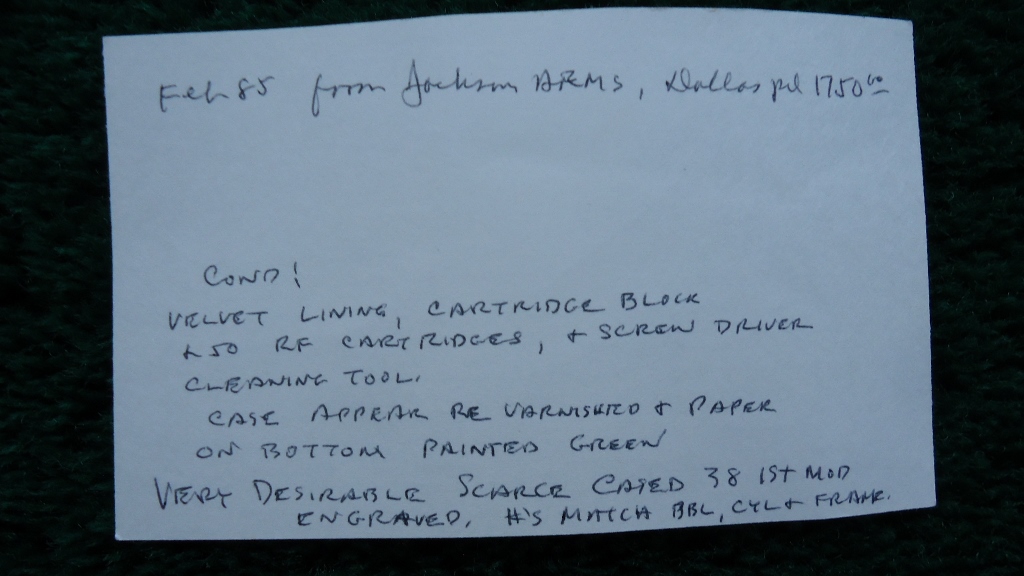 Feb 85 from Jackson ARMS, Dallas pd 1750⁰⁰
COND!
VELVET LINING, CARTRIDGE BLOCK
& 50 RF CARTRIDGES, & SCREW DRIVER
CLEANING TOOL.
CASE APPEAR RE VARNISHED & PAPER
ON BOTTOM PAINTED GREEN
VERY DESIRABLE SCARCE CASED 38 1ST MOD
ENGRAVED. #'S MATCH BBL, CYL & FRAME.